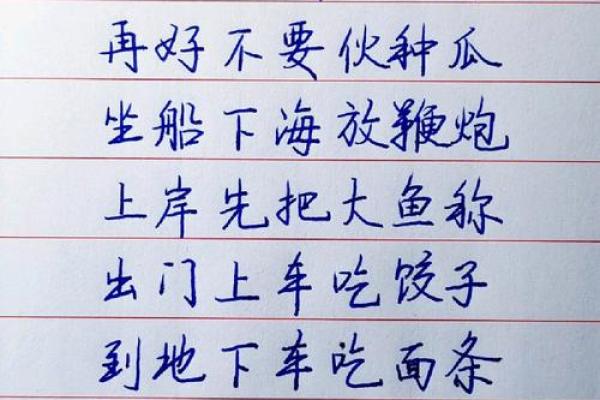 再好不要伙种瓜
坐船下海放鞭炮
上岸先把大鱼称
出门上车吃饺子
到地下车吃面条